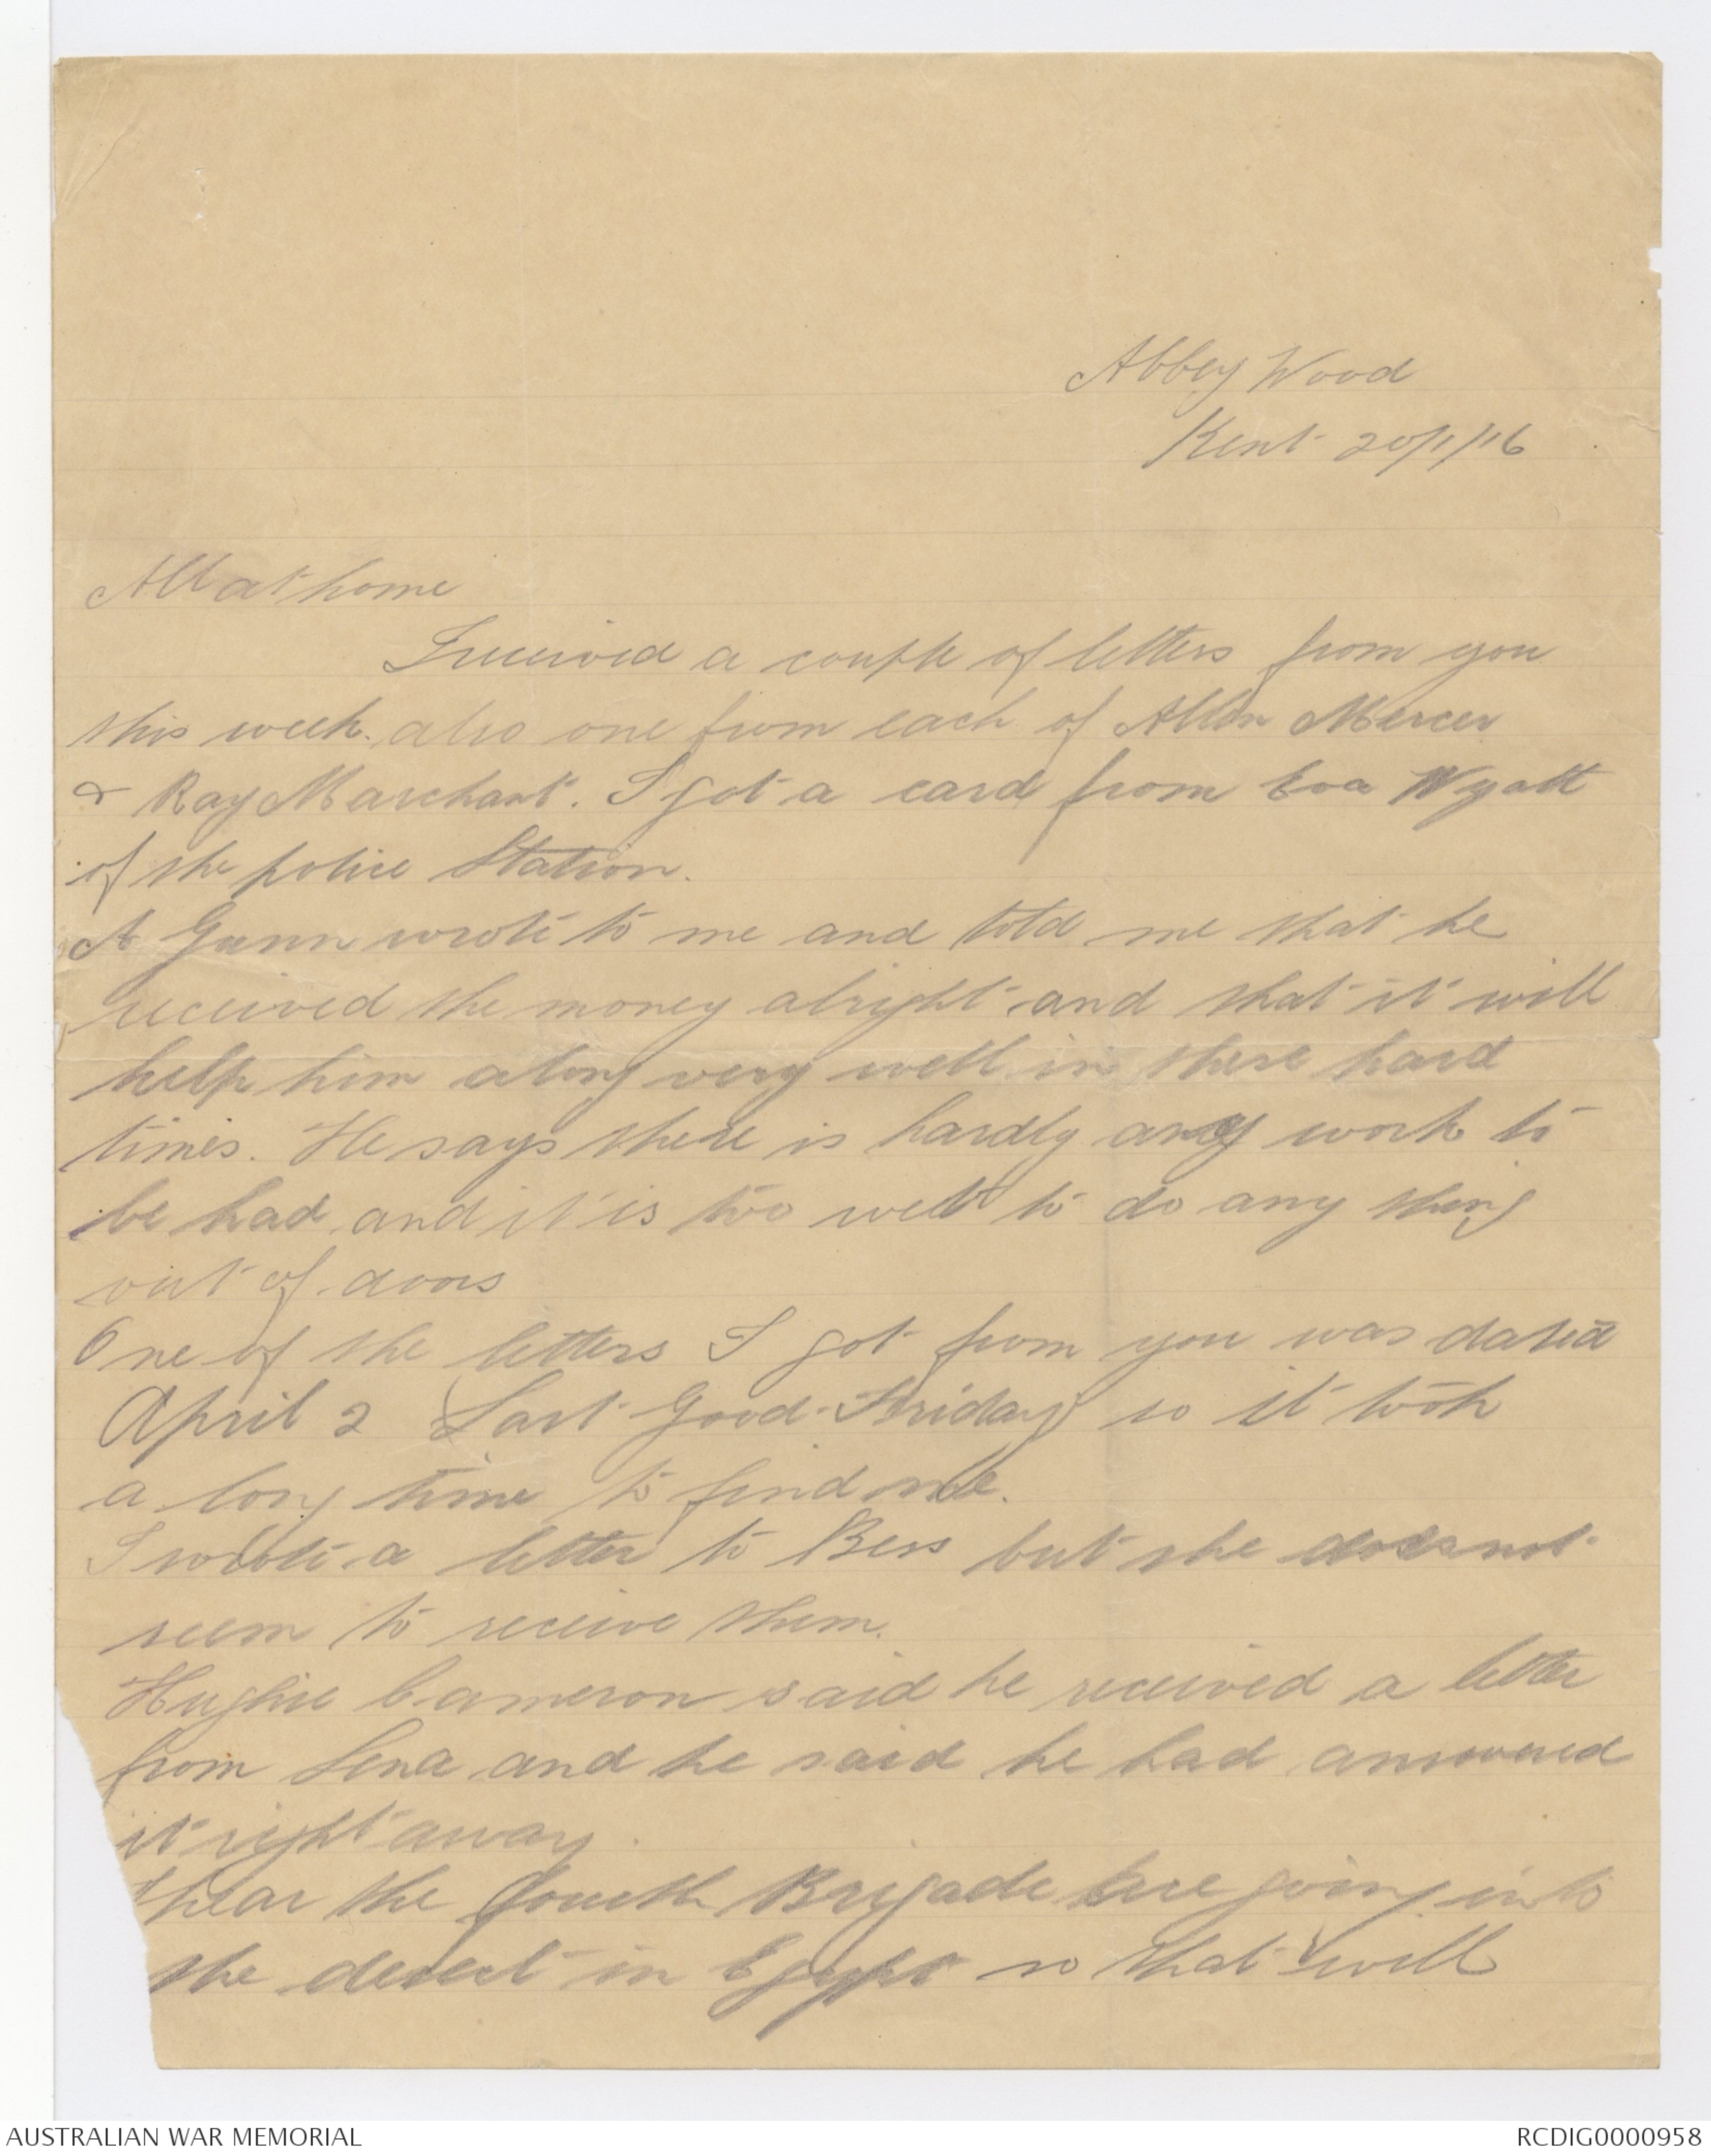 Abbey Wood
Kent 20/1/16
All at home
I received a couple of letters from you
this week. also one from each of Allan Mercer
& Ray Marchant. I got a card from Eva Wyatt
of the police Station.
A Gunn wrote to me and told me that he
received the money alright and that it will
help him along very well in these hard
times. He says there is hardly any work to
be had and it is too wet to do any thing
out of doors
One of the letters I got from you was dated
April 2 (Last Good Friday) so it took
a long time to find me.
I wrote a letter to Bess but she does not
seem to receive them.
Hughie Cameron said he received a letter
from Lena and he said he had answered
it right away.
I hear the fourth Brigade are going into
the desert in Egypt so that will
AUSTRALIAN WAR MEMORIAL
RCDIG0000958